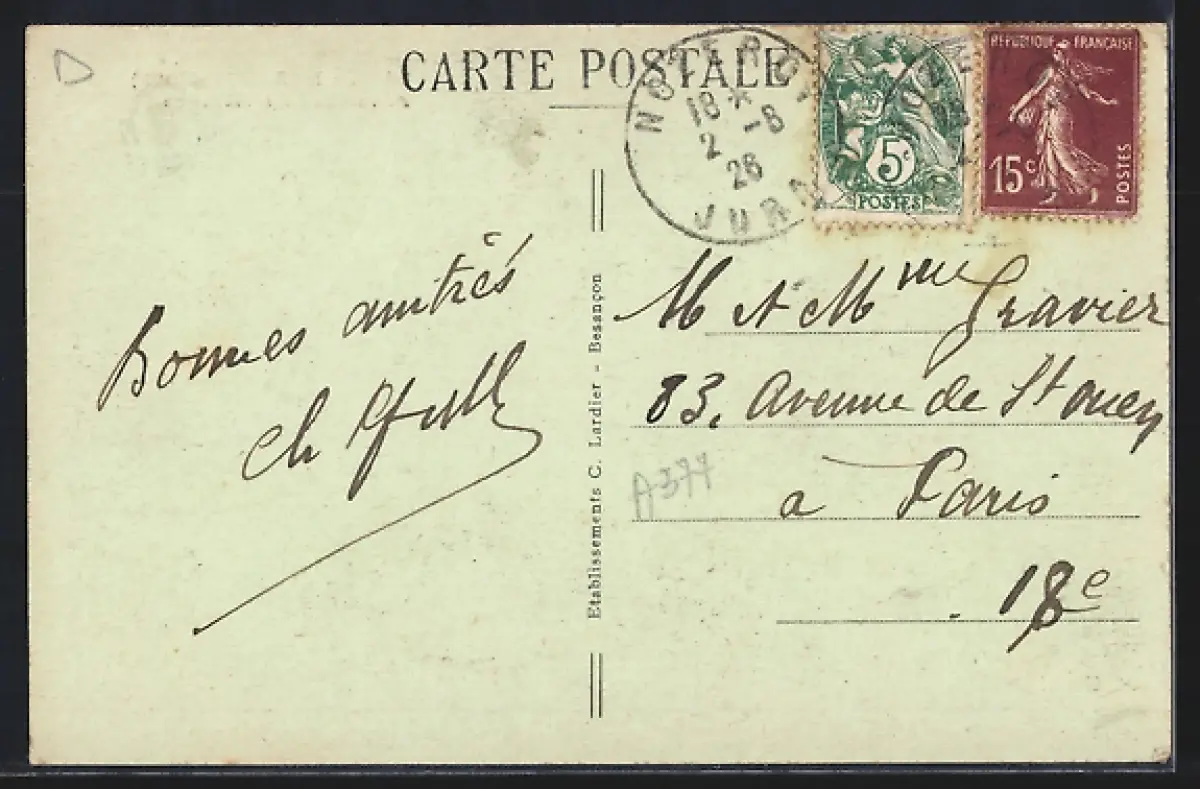 CARTE POSTALE
NOZEROY
18 *
2 -8
26
JURA
5c
POSTES
REPUBLIQUE FRANÇAISE
15c
POSTES
Bonnes amitiés
Ch
Etablissements C. Lardier - Besançon
M et Mme Gravier
83, Avenue de St Ouen
à Paris
18e
A377